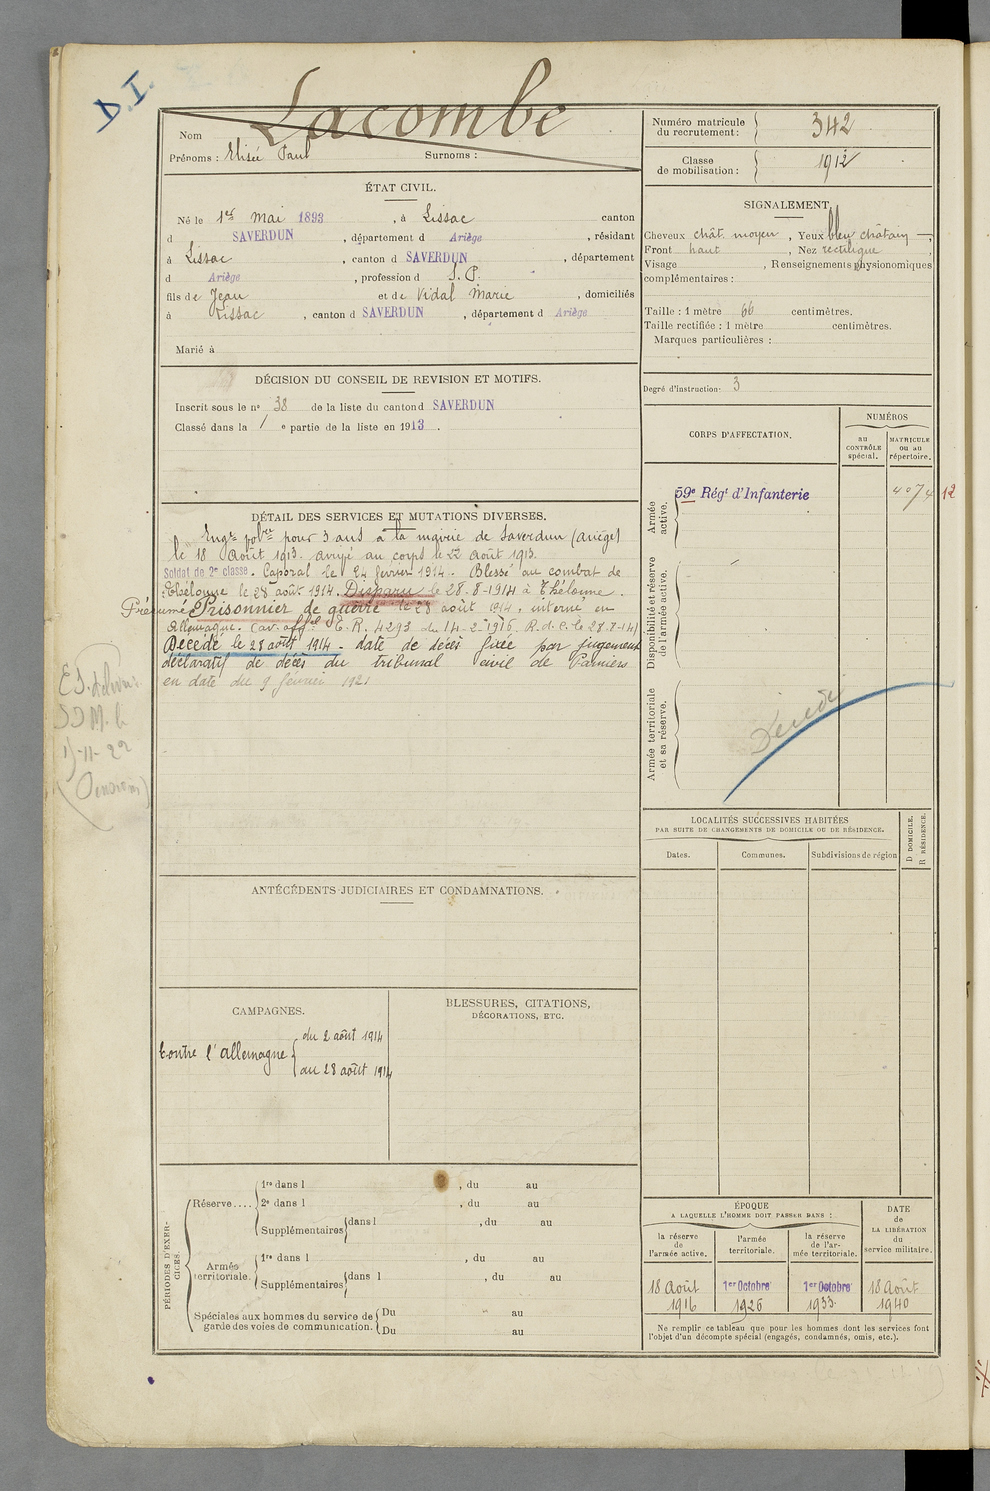 D.I.
Lacombe
Nom
Prénoms : Elisée Paul Surnoms :
Numéro matricule du recrutement : 342
Classe de mobilisation : 1912
ÉTAT CIVIL.
Né le 1er mai 1893, à Lissac canton
d SAVERDUN, département d Ariège, résidant
à Lissac, canton d SAVERDUN, département
d Ariège, profession d S. P.
fils de Jean et de Vidal Marie, domiciliés
à Lissac, canton d SAVERDUN, département d Ariège
Marié à
SIGNALEMENT.
Cheveux chât. moyen, Yeux bleu châtain
Front haut, Nez rectiligne,
Visage, Renseignements physionomiques
complémentaires :
Taille : 1 mètre 66 centimètres.
Taille rectifiée : 1 mètre centimètres.
Marques particulières :
Degré d'instruction : 3
DÉCISION DU CONSEIL DE REVISION ET MOTIFS.
Inscrit sous le n° 38 de la liste du canton d SAVERDUN
Classé dans la 1 e partie de la liste en 1913.
CORPS D'AFFECTATION.
NUMÉROS
au CONTRÔLE spécial.
MATRICULE ou au répertoire.
Armée active.
59e Régt d'Infanterie
4074
12
Disponibilité et réserve de l'armée active.
Armée territoriale et sa réserve.
Décédé
DÉTAIL DES SERVICES ET MUTATIONS DIVERSES.
Engé volre pour 3 ans à la mairie de Saverdun (Ariège)
le 18 Août 1913. Arrivé au corps le 22 Août 1913.
Soldat de 2e classe. Caporal le 24 février 1914. Blessé au combat de
Thélonne le 28 août 1914. Disparu le 28-8-1914 à Thélonne.
Présumé Prisonnier de guerre le 28 août 1914, interné en
Allemagne. (av. offel E.R. 4293 du 14-2-1916. R.d.C. le 28-8-14)
Décédé le 28 août 1914 - date de décès fixée par jugement
déclaratif de décès du tribunal civil de Pamiers
en date du 9 février 1921
11-22
LOCALITÉS SUCCESSIVES HABITÉES
PAR SUITE DE CHANGEMENTS DE DOMICILE OU DE RÉSIDENCE.
Dates.
Communes.
Subdivisions de région
D DOMICILE.
R RÉSIDENCE.
ANTÉCÉDENTS JUDICIAIRES ET CONDAMNATIONS.
CAMPAGNES.
Contre l'allemagne { du 2 août 1914
au 28 août 1914
BLESSURES, CITATIONS,
DÉCORATIONS, ETC.
PÉRIODES D'EXERCICES.
Réserve.... 1re dans l, du au
2e dans l, du au
Supplémentaires dans l, du au
Armée territoriale. 1re dans l, du au
Supplémentaires dans l, du au
Spéciales aux hommes du service de Du au
garde des voies de communication. Du au
ÉPOQUE
A LAQUELLE L'HOMME DOIT PASSER DANS :
la réserve de l'armée active.
l'armée territoriale.
la réserve de l'armée territoriale.
DATE de LA LIBÉRATION du service militaire.
18 Août 1916
1er Octobre 1926
1er Octobre 1933
18 Août 1940
Ne remplir ce tableau que pour les hommes dont les services font
l'objet d'un décompte spécial (engagés, condamnés, omis, etc.).